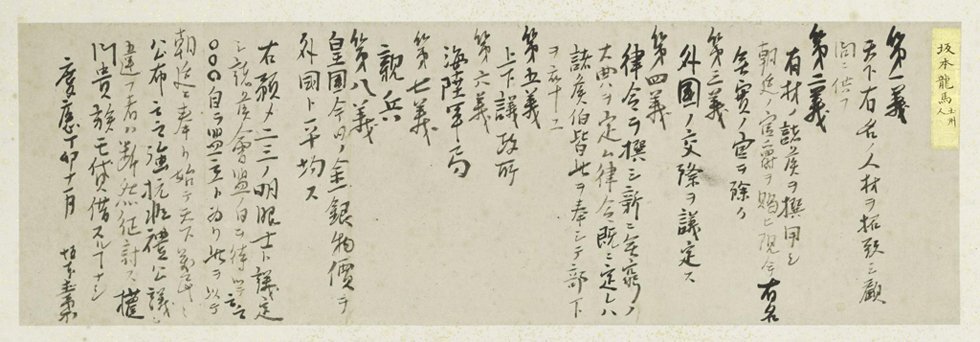 坂本龍馬
土州人
第一義
天下有名ノ人材ヲ招致シ顧
問ニ供フ
第二義
有材ノ諸侯ヲ撰用シ
朝廷ノ官爵ヲ賜ヒ現今有名
無実ノ官ヲ除ク
第三義
外国ノ交際ヲ議定ス
第四義
律令ヲ撰シ新ニ無窮ノ
大典ヲ定ム律令既ニ定レハ
諸侯伯皆此ヲ奉シテ部下
ヲ率ユ
第五義
上下議政所
第六義
海陸軍局
第七義
親兵
第八義
皇国今日ノ金銀物價ヲ
外国ト平均ス
右預メ二三ノ明眼士ト議定
シ諸侯會盟ノ日ヲ待ツテ云云
○○○自ラ盟主ト為リ此ヲ以テ
朝廷ニ奉リ始テ天下萬民ニ
公布云云強抗非禮公議ニ
違フ者ハ断然征討ス權
門貴族モ貸借スルナシ
慶應丁卯十一月 坂本直柔